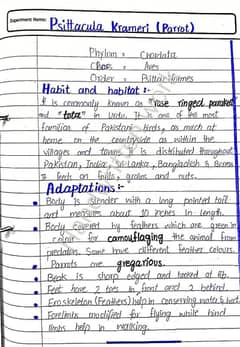 Experiment Name: Psittacula Krameri (Parrot)
Phylum = Chordata
Class = Aves
Order = Psittaciformes
Habit and habitat :-
It is commonly known as "rose ringed parakeet
and "tota" in Urdu. It is one of the most
familiar of Pakistani birds, as much at
home on the countryside as within the
villages and towns. It is distributed throughout
Pakistan, India, Sri Lanka, Bangladesh &
feeds on fruits, grains and nuts.
Adaptations :-
Body is slender with a long pointed tail
and measures about 10 inches in length.
Body covered by feathers which are green in
colour for camouflaging the animal from
predator. Some have different feather colours.
Parrots are gregarious.
Beak is sharp edged and hooked at tip.
Feet have 2 toes in front and 2 behind.
Exoskeleton (Feathers) help in conserving water & heat.
Forelimbs modified for flying while hind
limbs help in walking.